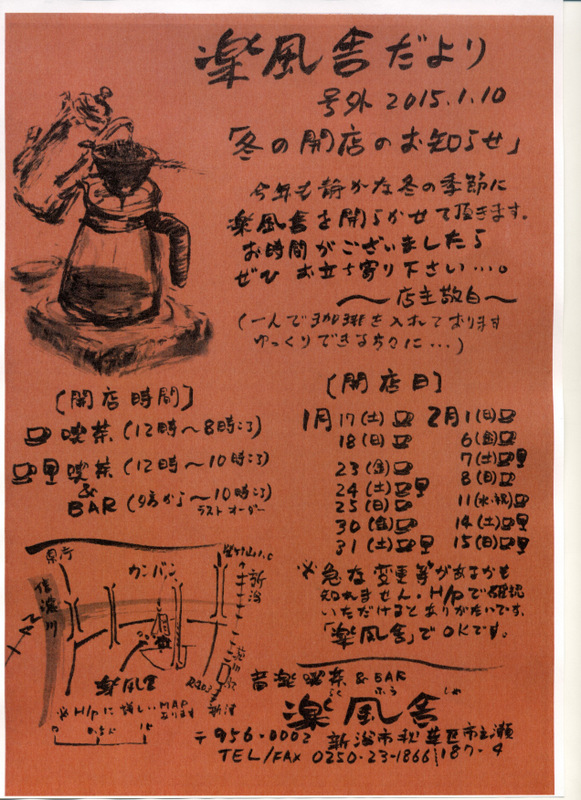 楽風舎だより
号外 2015.1.10
「冬の開店のお知らせ」
今年も静かな冬の季節に
楽風舎を開らかせて頂きます。
お時間がございましたら
ぜひ お立ち寄り下さい…。
〜店主敬白〜
(一人で珈琲を入れております
ゆっくりできる方々に…)
[開店時間]
喫茶 (12時〜8時ころ)
喫茶 (12時〜10時ころ)
&
BAR (夕方から〜10時ころ)
ラストオーダー
[開店日]
1月 17(土)
18(日)
23(金)
24(土)
25(日)
30(金)
31(土)
2月 1(日)
6(金)
7(土)
8(日)
11(水・祝)
14(土)
15(日)
※急な変更等があるかも
知れません。H/pで確認
いただけるとありがたいです。
「楽風舎」でOKです。
県庁
カンバン
信濃川
新潟
楽風舎
R403
新津
※H/pに詳しいMAP
あります
0 0.5 1k
音楽喫茶&BAR
らく ふう しゃ
楽風舎
〒956-0002 新潟市秋葉区市之瀬
187-4
TEL/FAX 0250-23-1866